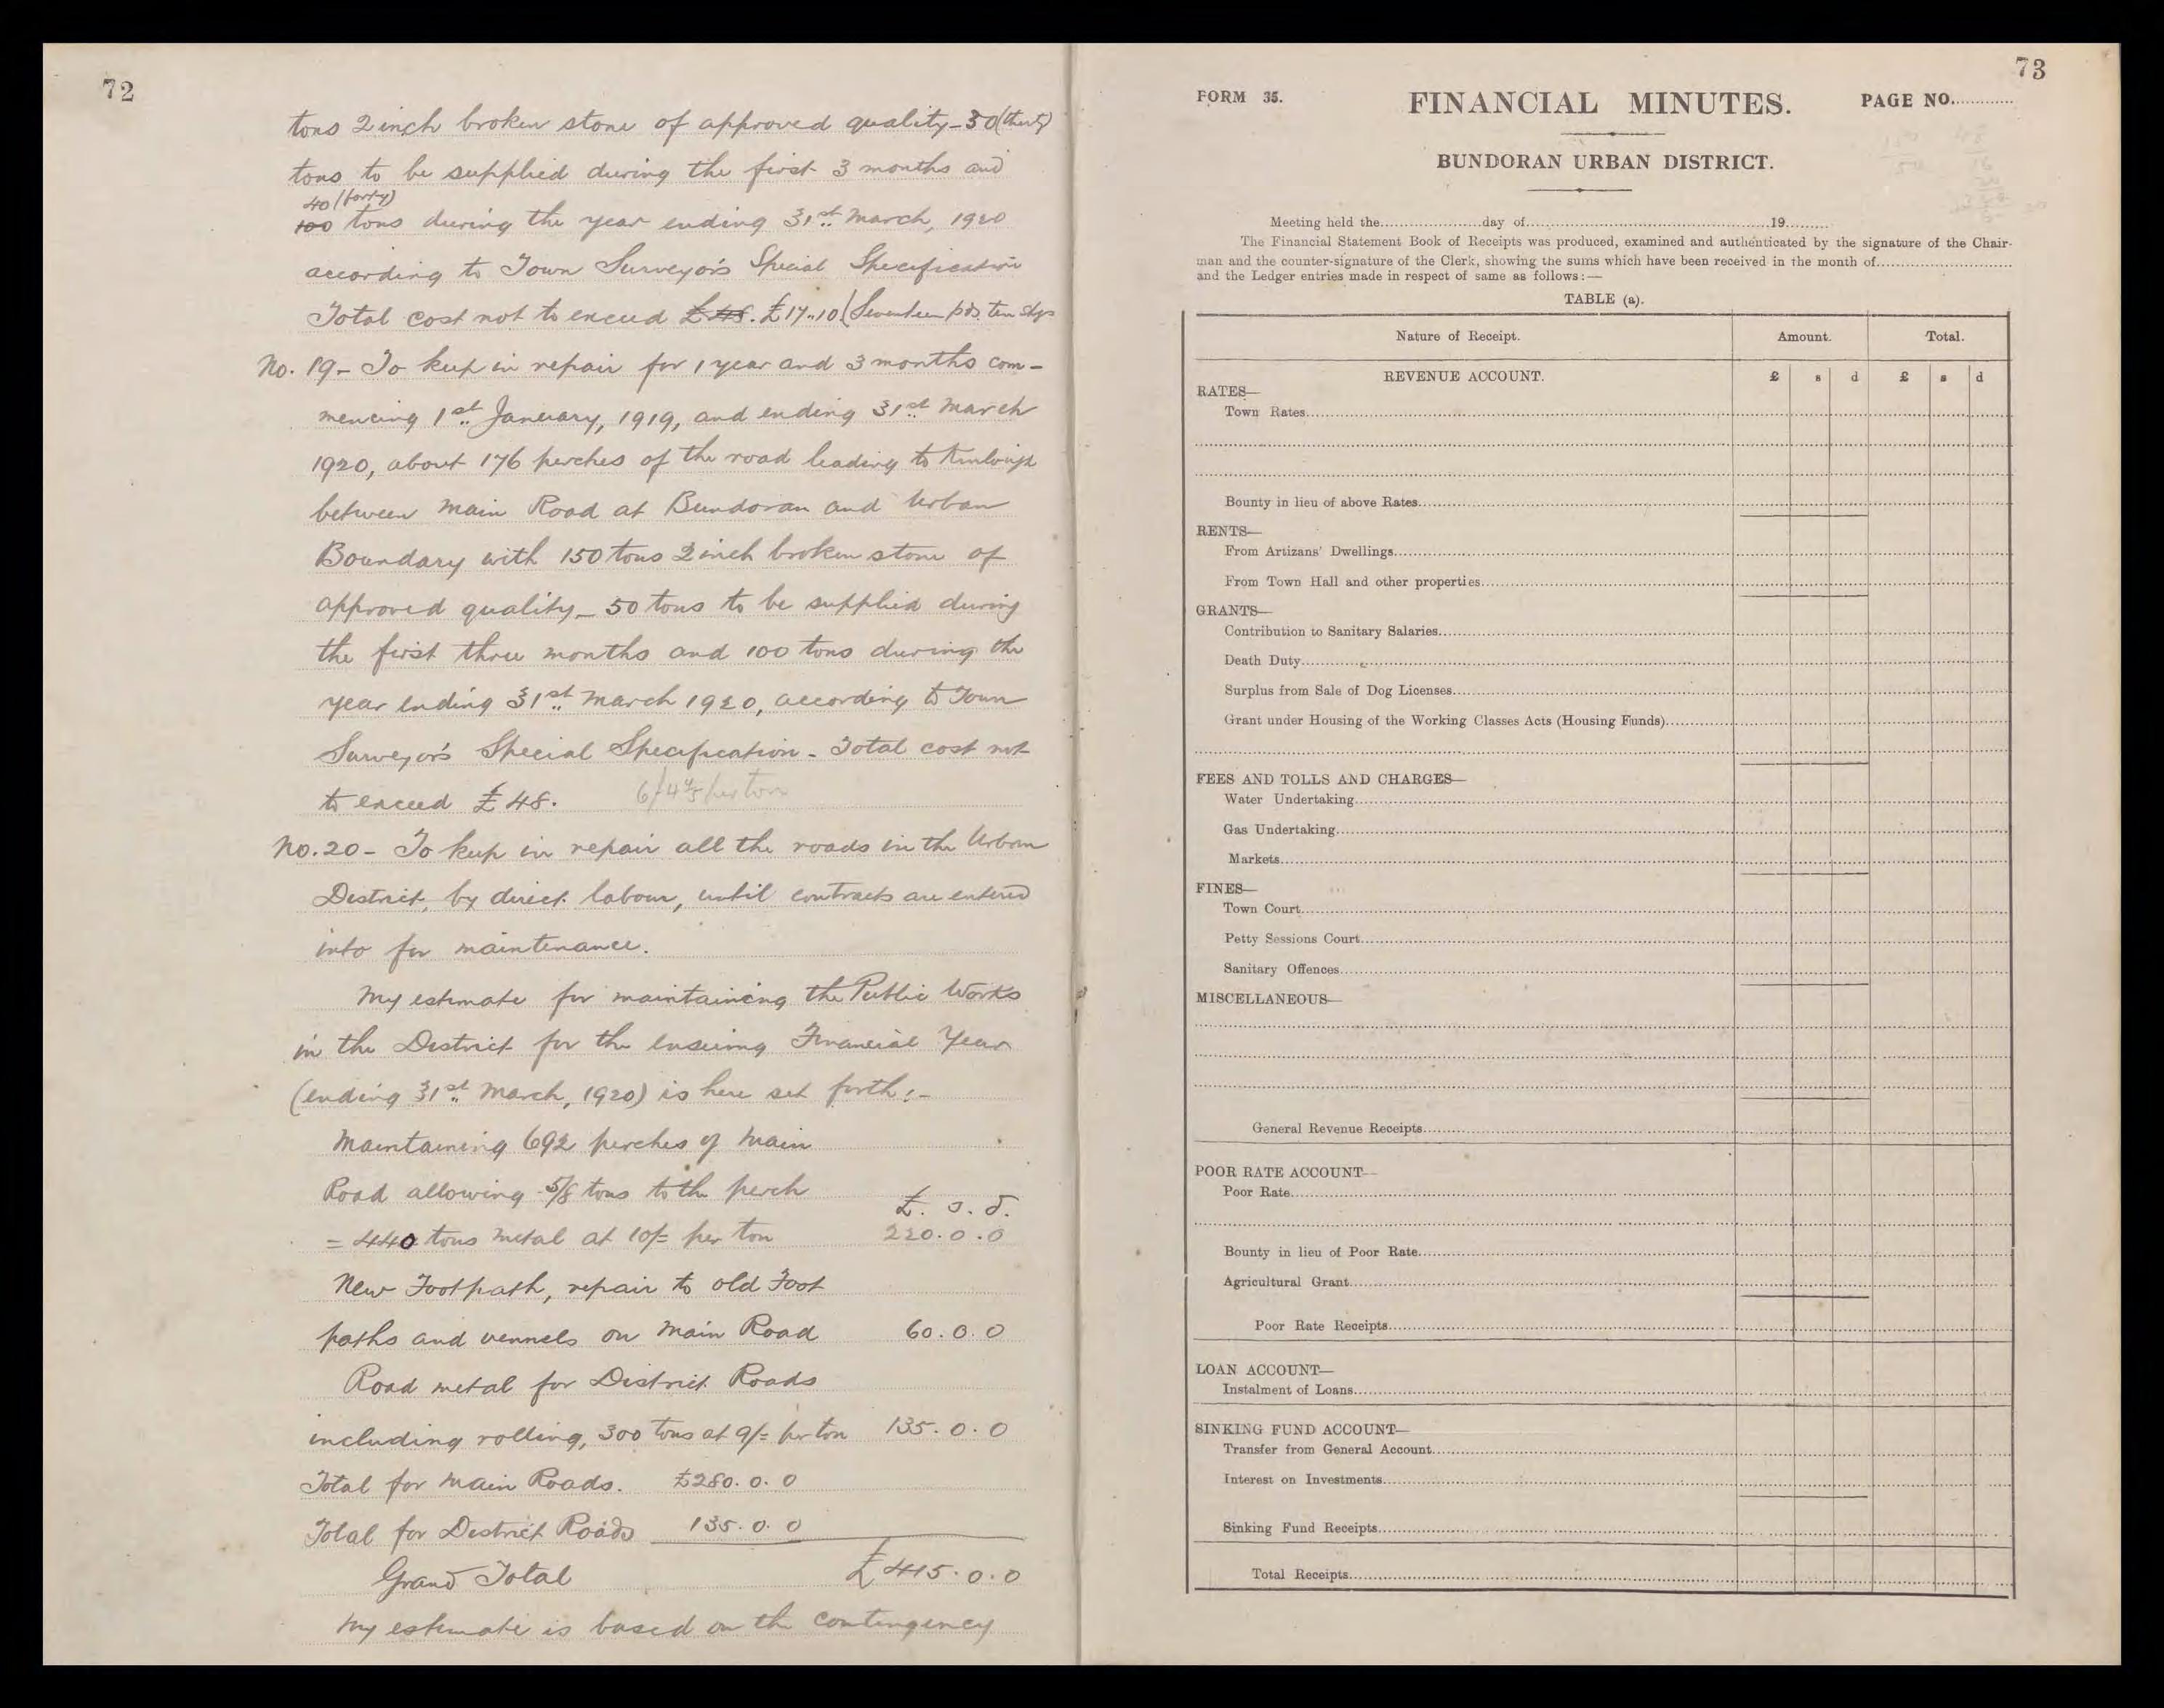 72
tons 2 inch broken stone of approved quality - 30 (thirty)
tons to be supplied during the first 3 months and
40 (forty)
100 tons during the year ending 31st March, 1920
according to Town Surveyor's Special Specification
Total cost not to exceed £48. £17..10 (Seventeen pds ten slgs
No. 19 - To keep in repair for 1 year and 3 months com-
mencing 1st January, 1919, and ending 31st March
1920, about 176 perches of the road leading to Kinlough
between Main Road at Bundoran and Urban
Boundary with 150 tons 2 inch broken stone of
approved quality - 50 tons to be supplied during
the first three months and 100 tons during the
year ending 31st March 1920, according to Town
Surveyor's Special Specification - Total cost not
to exceed £48. 6/4 4/5 per ton
No. 20 - To keep in repair all the roads in the Urban
District, by direct labour, until contracts are entered
into for maintenance.
My estimate for maintaining the Public Works
in the District for the ensuing Financial Year
(ending 31st March, 1920) is here set forth:-
Maintaining 692 perches of Main
Road allowing 5/8 tons to the perch £. s. d.
= 440 tons metal at 10/= per ton 220.0.0
New Footpath, repair to old Foot
paths and vennels on Main Road 60.0.0
Road metal for District Roads
including rolling, 300 tons at 9/= per ton 135.0.0
Total for Main Roads. £280.0.0
Total for District Roads 135.0.0
Grand Total £415.0.0
My estimate is based on the contingency
73
FORM 35. FINANCIAL MINUTES. PAGE NO.............
BUNDORAN URBAN DISTRICT.
Meeting held the.....................day of..................................................19..........
The Financial Statement Book of Receipts was produced, examined and authenticated by the signature of the Chair-
man and the counter-signature of the Clerk, showing the sums which have been received in the month of............................
and the Ledger entries made in respect of same as follows:—
TABLE (a).
Nature of Receipt. Amount. Total.
REVENUE ACCOUNT. £ s d £ s d
RATES—
Town Rates
Bounty in lieu of above Rates
RENTS—
From Artizans' Dwellings
From Town Hall and other properties
GRANTS—
Contribution to Sanitary Salaries
Death Duty
Surplus from Sale of Dog Licenses
Grant under Housing of the Working Classes Acts (Housing Funds)
FEES AND TOLLS AND CHARGES—
Water Undertaking
Gas Undertaking
Markets
FINES—
Town Court
Petty Sessions Court
Sanitary Offences
MISCELLANEOUS—
General Revenue Receipts
POOR RATE ACCOUNT—
Poor Rate
Bounty in lieu of Poor Rate
Agricultural Grant
Poor Rate Receipts
LOAN ACCOUNT—
Instalment of Loans
SINKING FUND ACCOUNT—
Transfer from General Account
Interest on Investments
Sinking Fund Receipts
Total Receipts